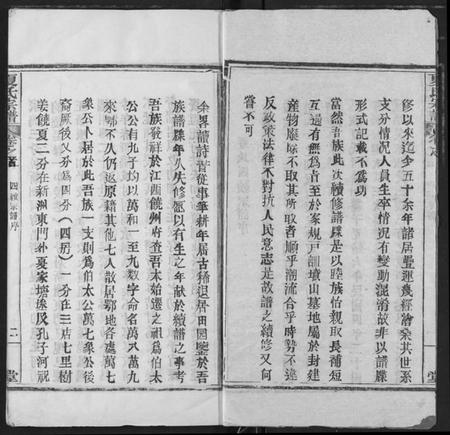 修以來迄今五十余年諸居豎理幾經滄桑共世系
支分情況人員生卒情况有變動混淆故非以譜牒
形式記載不爲功
當然吾族此次續修譜牒是以睦族怡親取長補短
互通有無爲旨至於家規戸訓墳山墓地屬於封建
産物廢除不取其所取者順乎潮流合乎時勢不違
反政策法律不對抗人民意志是故譜之續修又何
嘗不可
余畧譜詩書從事筆耕年居古稀退居田園鑒於吾
族譜牒年久失修愿以有生之年献於續譜之事考
吾族發祥於江西饒州府查吾未始遷之祖爲伯太
公公有九子均以萬和一至九數字命名萬八萬九
來鄂不久仍返原籍其他七人散居鄂地各處萬七
象公卜居於此吾族一支則爲伯太公萬七象公後
裔厥後又分爲四分(四房)一分在三店七里樹
姜饒夏二分在新洲東門外夏家塘㙮及孔子河祝
夏氏宗譜
卷之首
四續宗譜序
二
堂